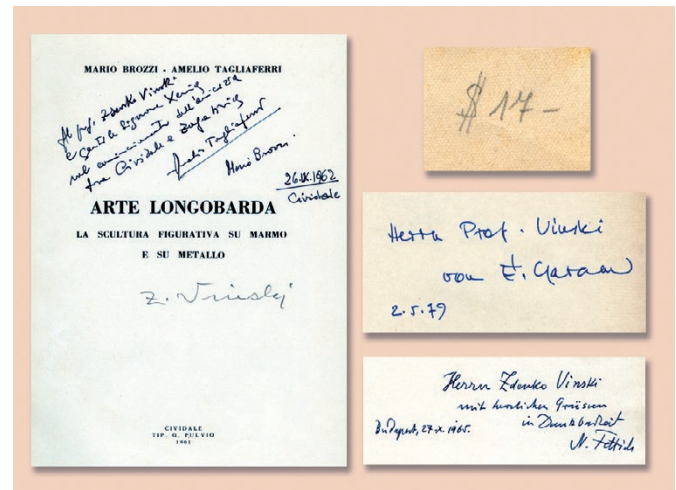 MARIO BROZZI - AMELIO TAGLIAFERRI
Al prof. Zdenko Vinski
e gentile Signora Xenia
nel cominciamento dell'amicizia
fra Cividale e Zagabria
Amelio Tagliaferri
Mario Brozzi
26.IX.1962
Cividale
ARTE LONGOBARDA
LA SCULTURA FIGURATIVA SU MARMO
E SU METALLO
Z. Vinski
CIVIDALE
TIP. G. FULVIO
1961
$ 17-
Herrn Prof. Vinski
von É. Garam
2.5.79
Herrn Zdenko Vinski
mit herzlichen Grüssen
in Dankbarkeit
Budapest, 27.X.1965.
N. Fettich